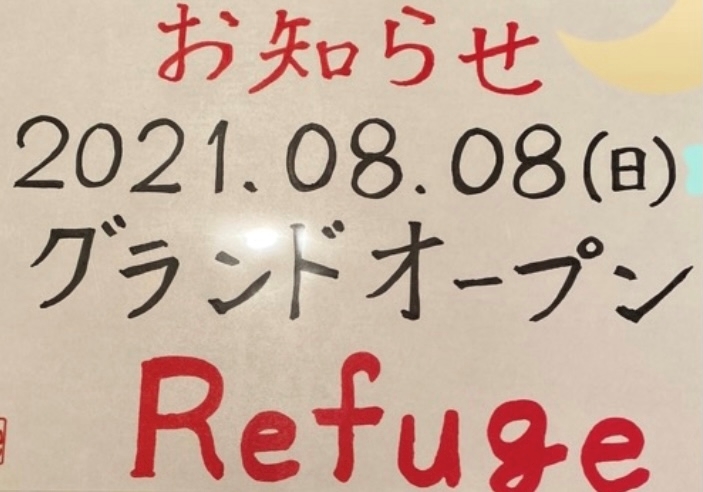 お知らせ
2021.08.08(日)
グランドオープン
Refuge